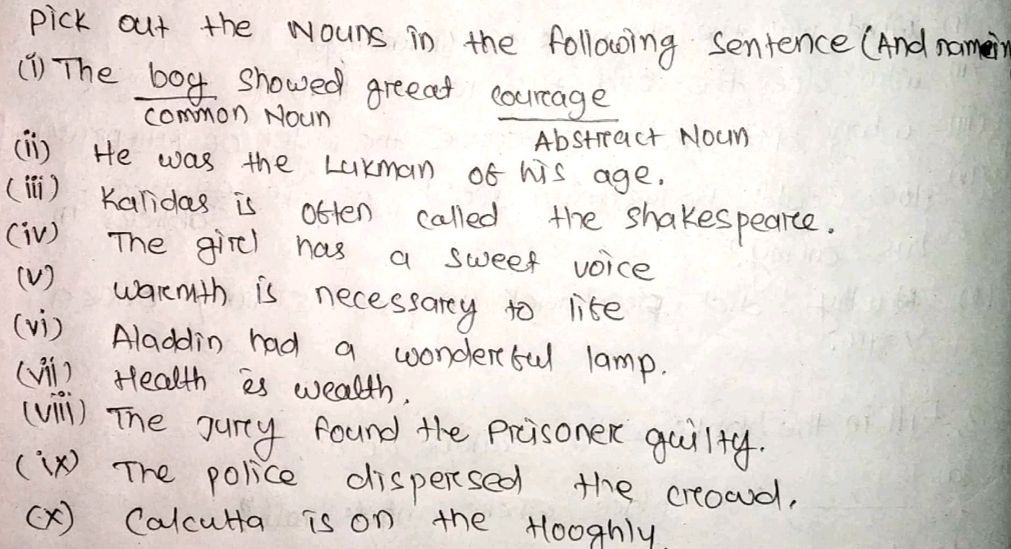 Pick out the Nouns in the following sentence (And namein
(i) The boy showed greeat courage
common Noun
Abstract Noun
(ii) He was the Lukman of his age.
(iii) Kalidas is often called the shakespeare.
(iv) The girl has a sweet voice
(v) warmth is necessary to life
(vi) Aladdin had a wonderful lamp.
(vii) Health is wealth.
(viii) The jury found the Prisoner guilty.
(ix) The police dispersed the creowd.
(x) Calcutta is on the Hooghly